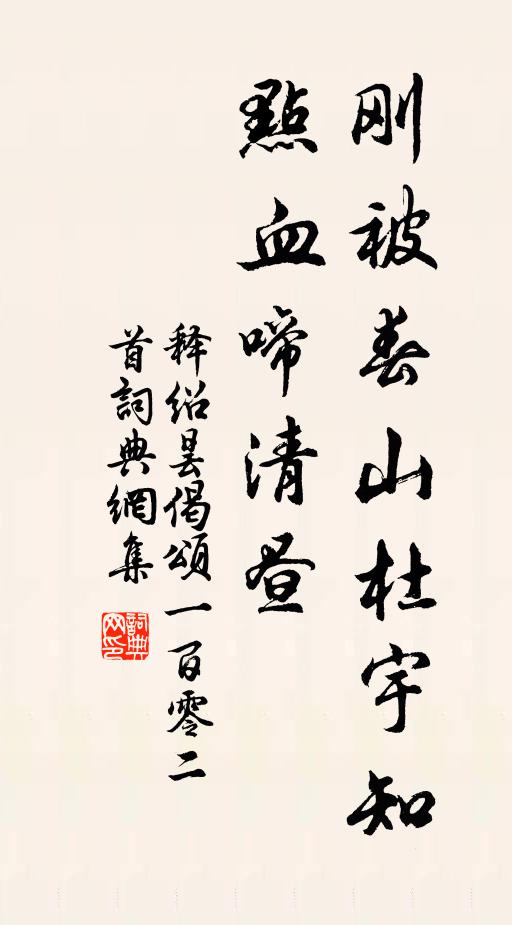 刚被春山杜宇知
點血啼清昼
释绍昙偈頌一百零二
首詞典網集
詞典
网印